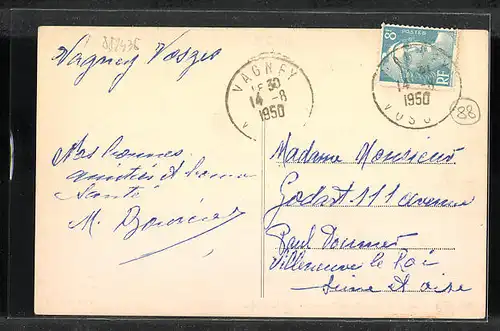 Vagney Vosges
8F
POSTES
RF
VAGNEY
15 30
14-8
1950
14-8
1950
VOSG
88
Nos bonnes
amitiés et bonne
Santé
M.
Madame Monsieur
Godart 111 avenue
Paul Doumer
Villeneuve le Roi
Seine et oise